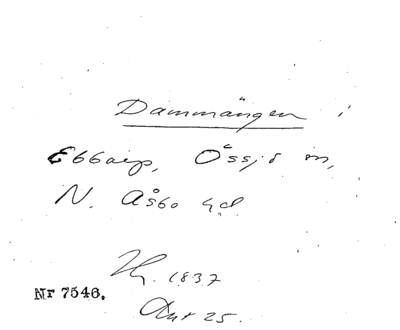 Dammängen i
Ebbarp, Össjö sn,
N. Åsbo hd.
Hy. 1837
Akt 25.
Nr 7546.